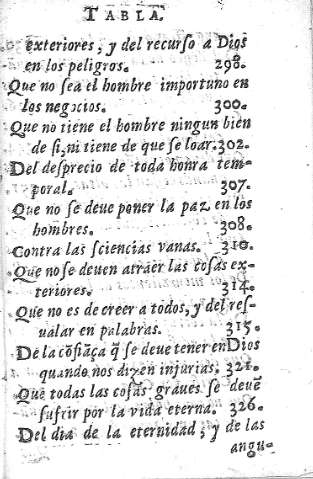 TABLA.
exteriores, y del recurso a Dios
en los peligros. 298.
Que no sea el hombre importuno en
los negocios. 300.
Que no tiene el hombre ningun bien
de si, ni tiene de que se loar. 302.
Del desprecio de toda honra tem-
poral. 307.
Que no se deve poner la paz en los
hombres. 308.
Contra las sciencias vanas. 310.
Que no se deuen atraer las cosas ex-
teriores. 314.
Que no es de creer a todos, y del res-
ualar en palabras. 315.
De la cõfiãça q̃ se deue tener en Dios
quando nos dizen injurias. 321.
Que todas las cosas graues se deuẽ
sufrir por la vida eterna. 326.
Del dia de la eternidad, y de las
angu-